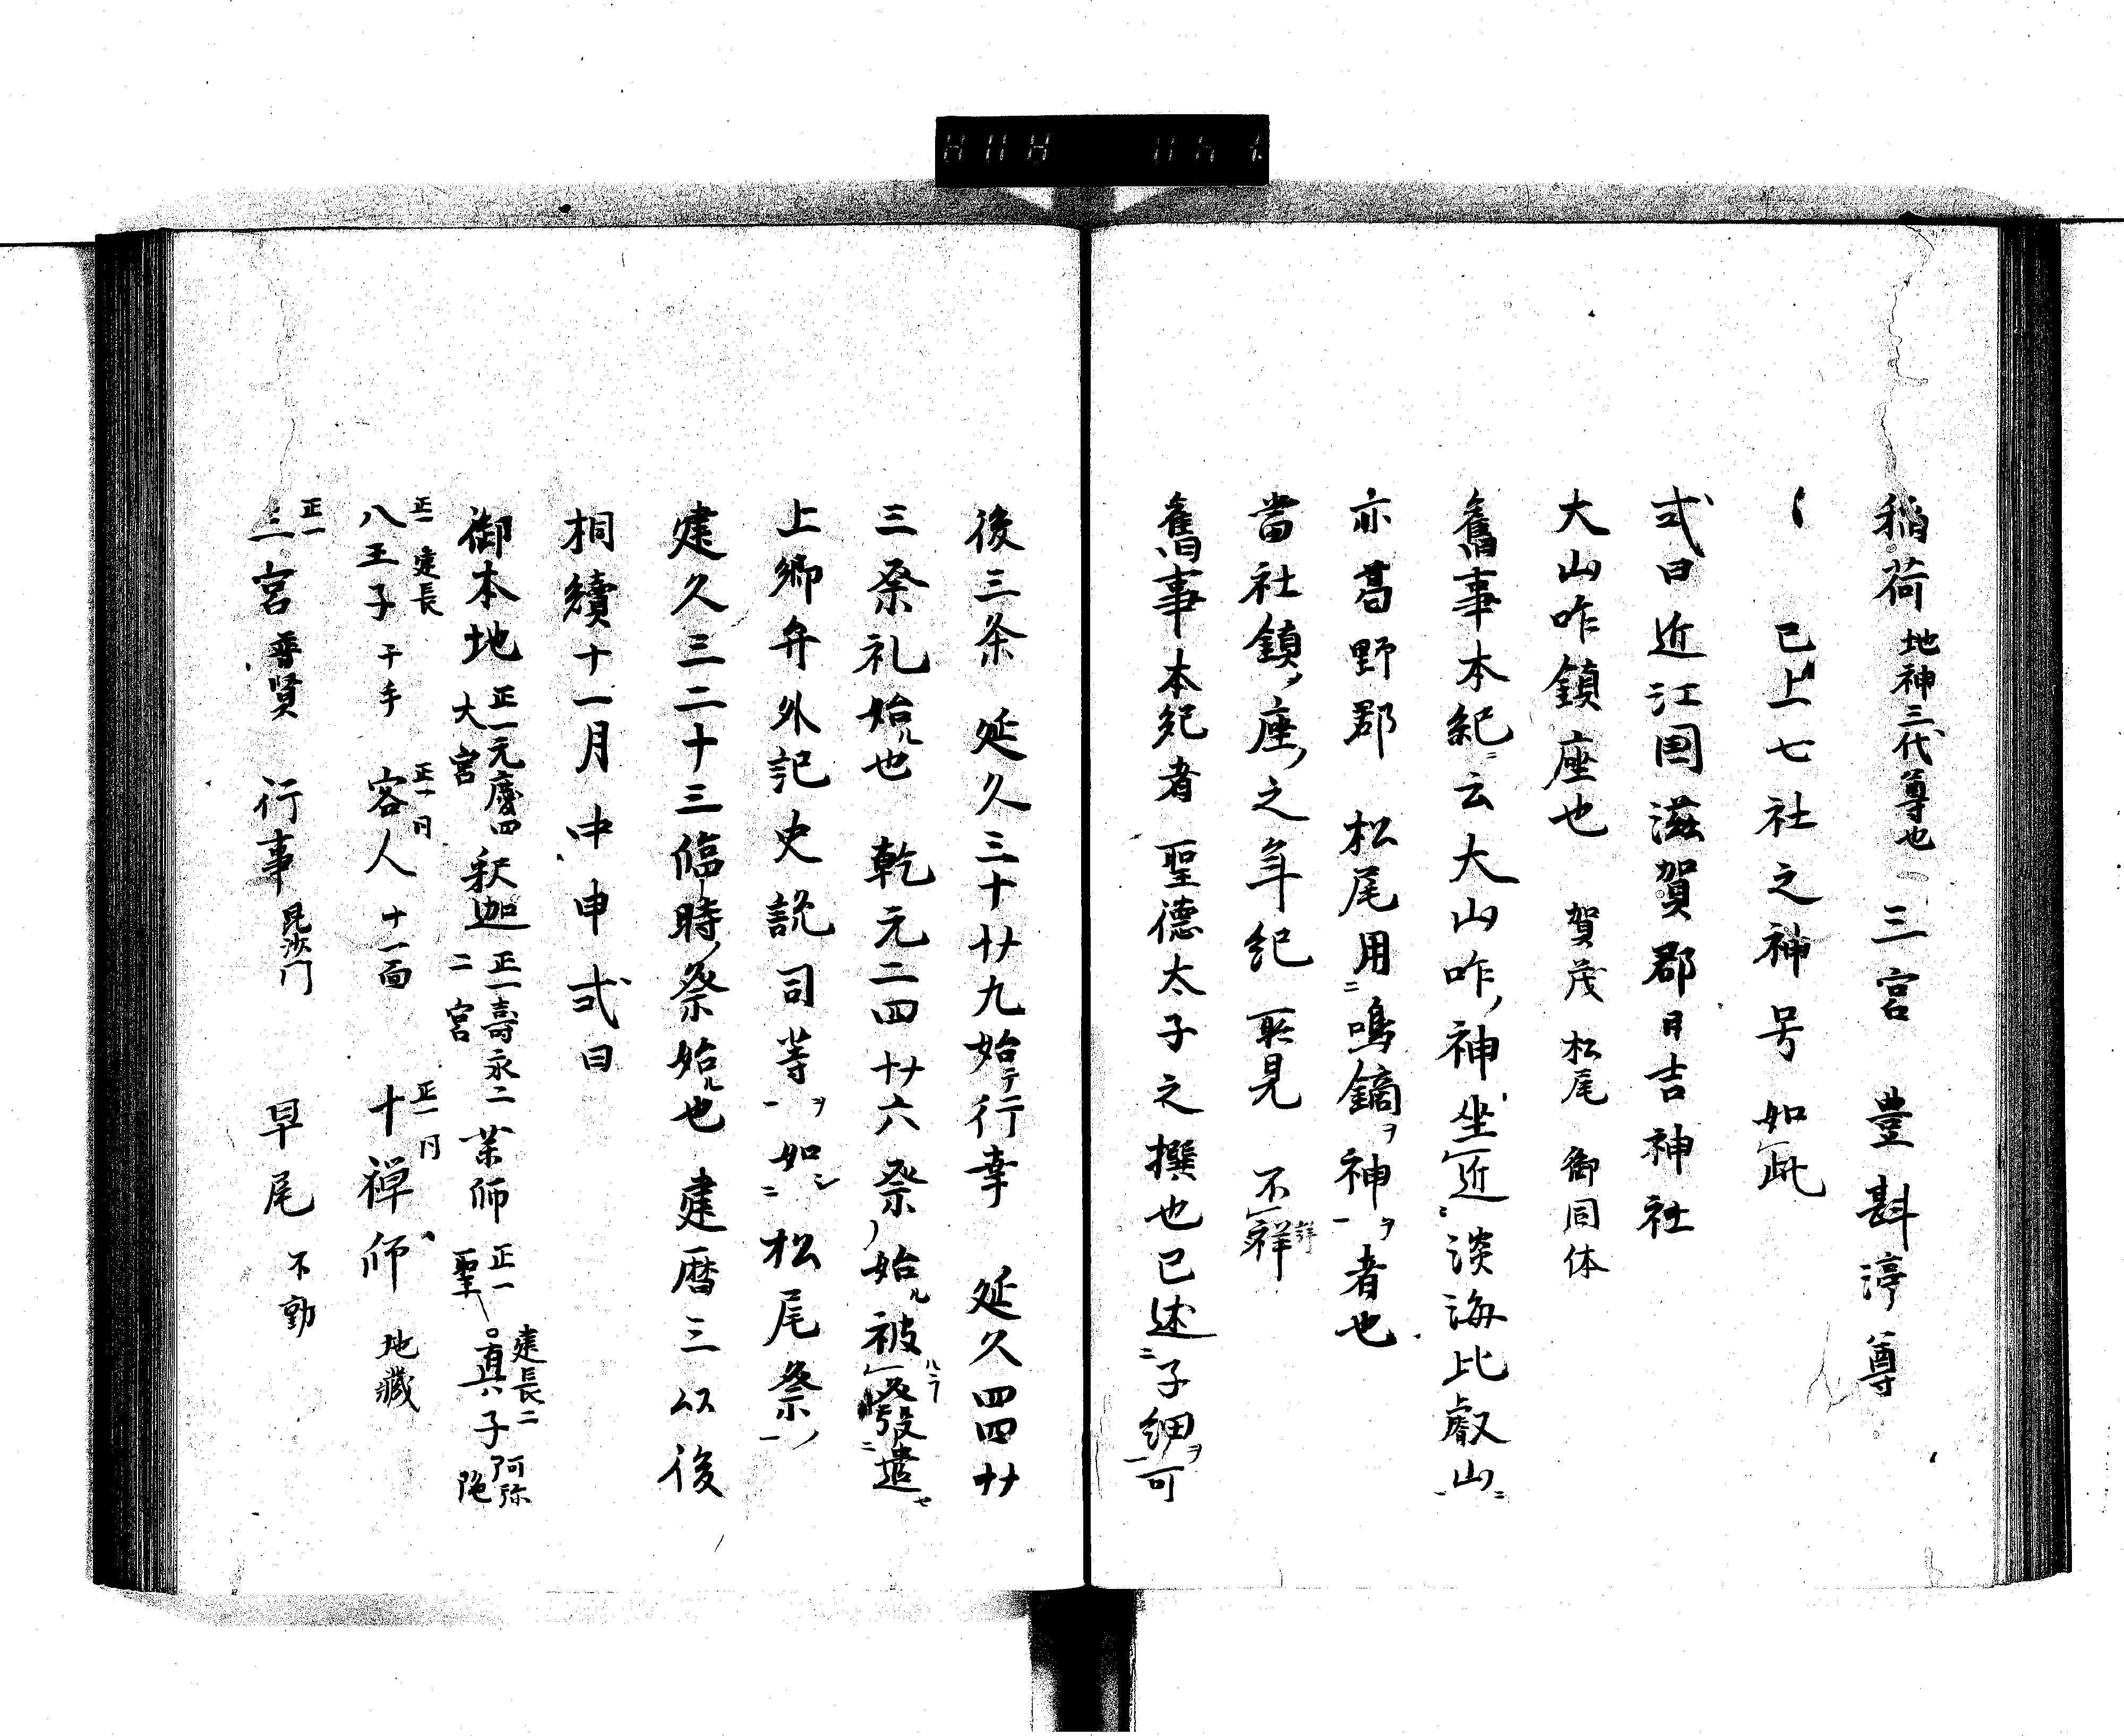 稲荷 地神三代尊也 三宮 豊斟渟尊
〻 已上七社之神号如此
式曰近江国滋賀郡日吉神社
大山咋鎮座也 賀茂 松尾 御同体
舊事本紀ニ云大山咋ノ神坐近ニ淡海比叡山ニ
亦葛野郡 松尾用ニ鳴鏑ヲ神ヲ者也
當社鎮ノ座ノ之年紀所見 不祥詳
舊事本紀者 聖德太子之撰也已述ニ子細ヲ可
後三条 延久三十廿九始テ行幸 延久四四廿
三祭礼始ル也 乾元二四廿六祭ノ始ル被發遣セ
上卿弁外記史説司等ヲ如シ松尾祭ノ
建久三二十三臨時ノ祭始ル也 建暦三以後
相續十一月中申式曰
御本地 正一元慶四 大宮 釈迦 正一壽永二 二宮 薬師 正一 聖真子 建長二 阿弥陀
正一 建長 八王子 千手 正一同 客人 十一面 正一同 十禅師 地蔵
正一 三宮 普賢 行事 毘沙門 早尾 不動